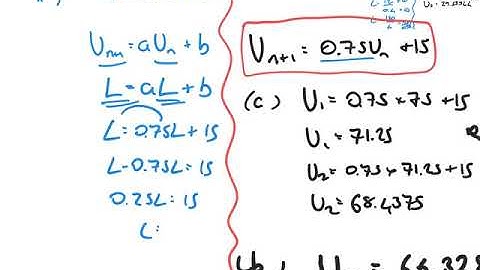 Uₙ₊₁ = aUₙ + b
L = aL + b
L = 0.75L + 15
L - 0.75L = 15
0.25L = 15
L =
Uₙ₊₁ = 0.75Uₙ + 15
(c) U₁ = 0.75 × 75 + 15
U₁ = 71.25
U₂ = 0.75 × 71.25 + 15
U₂ = 68.4375